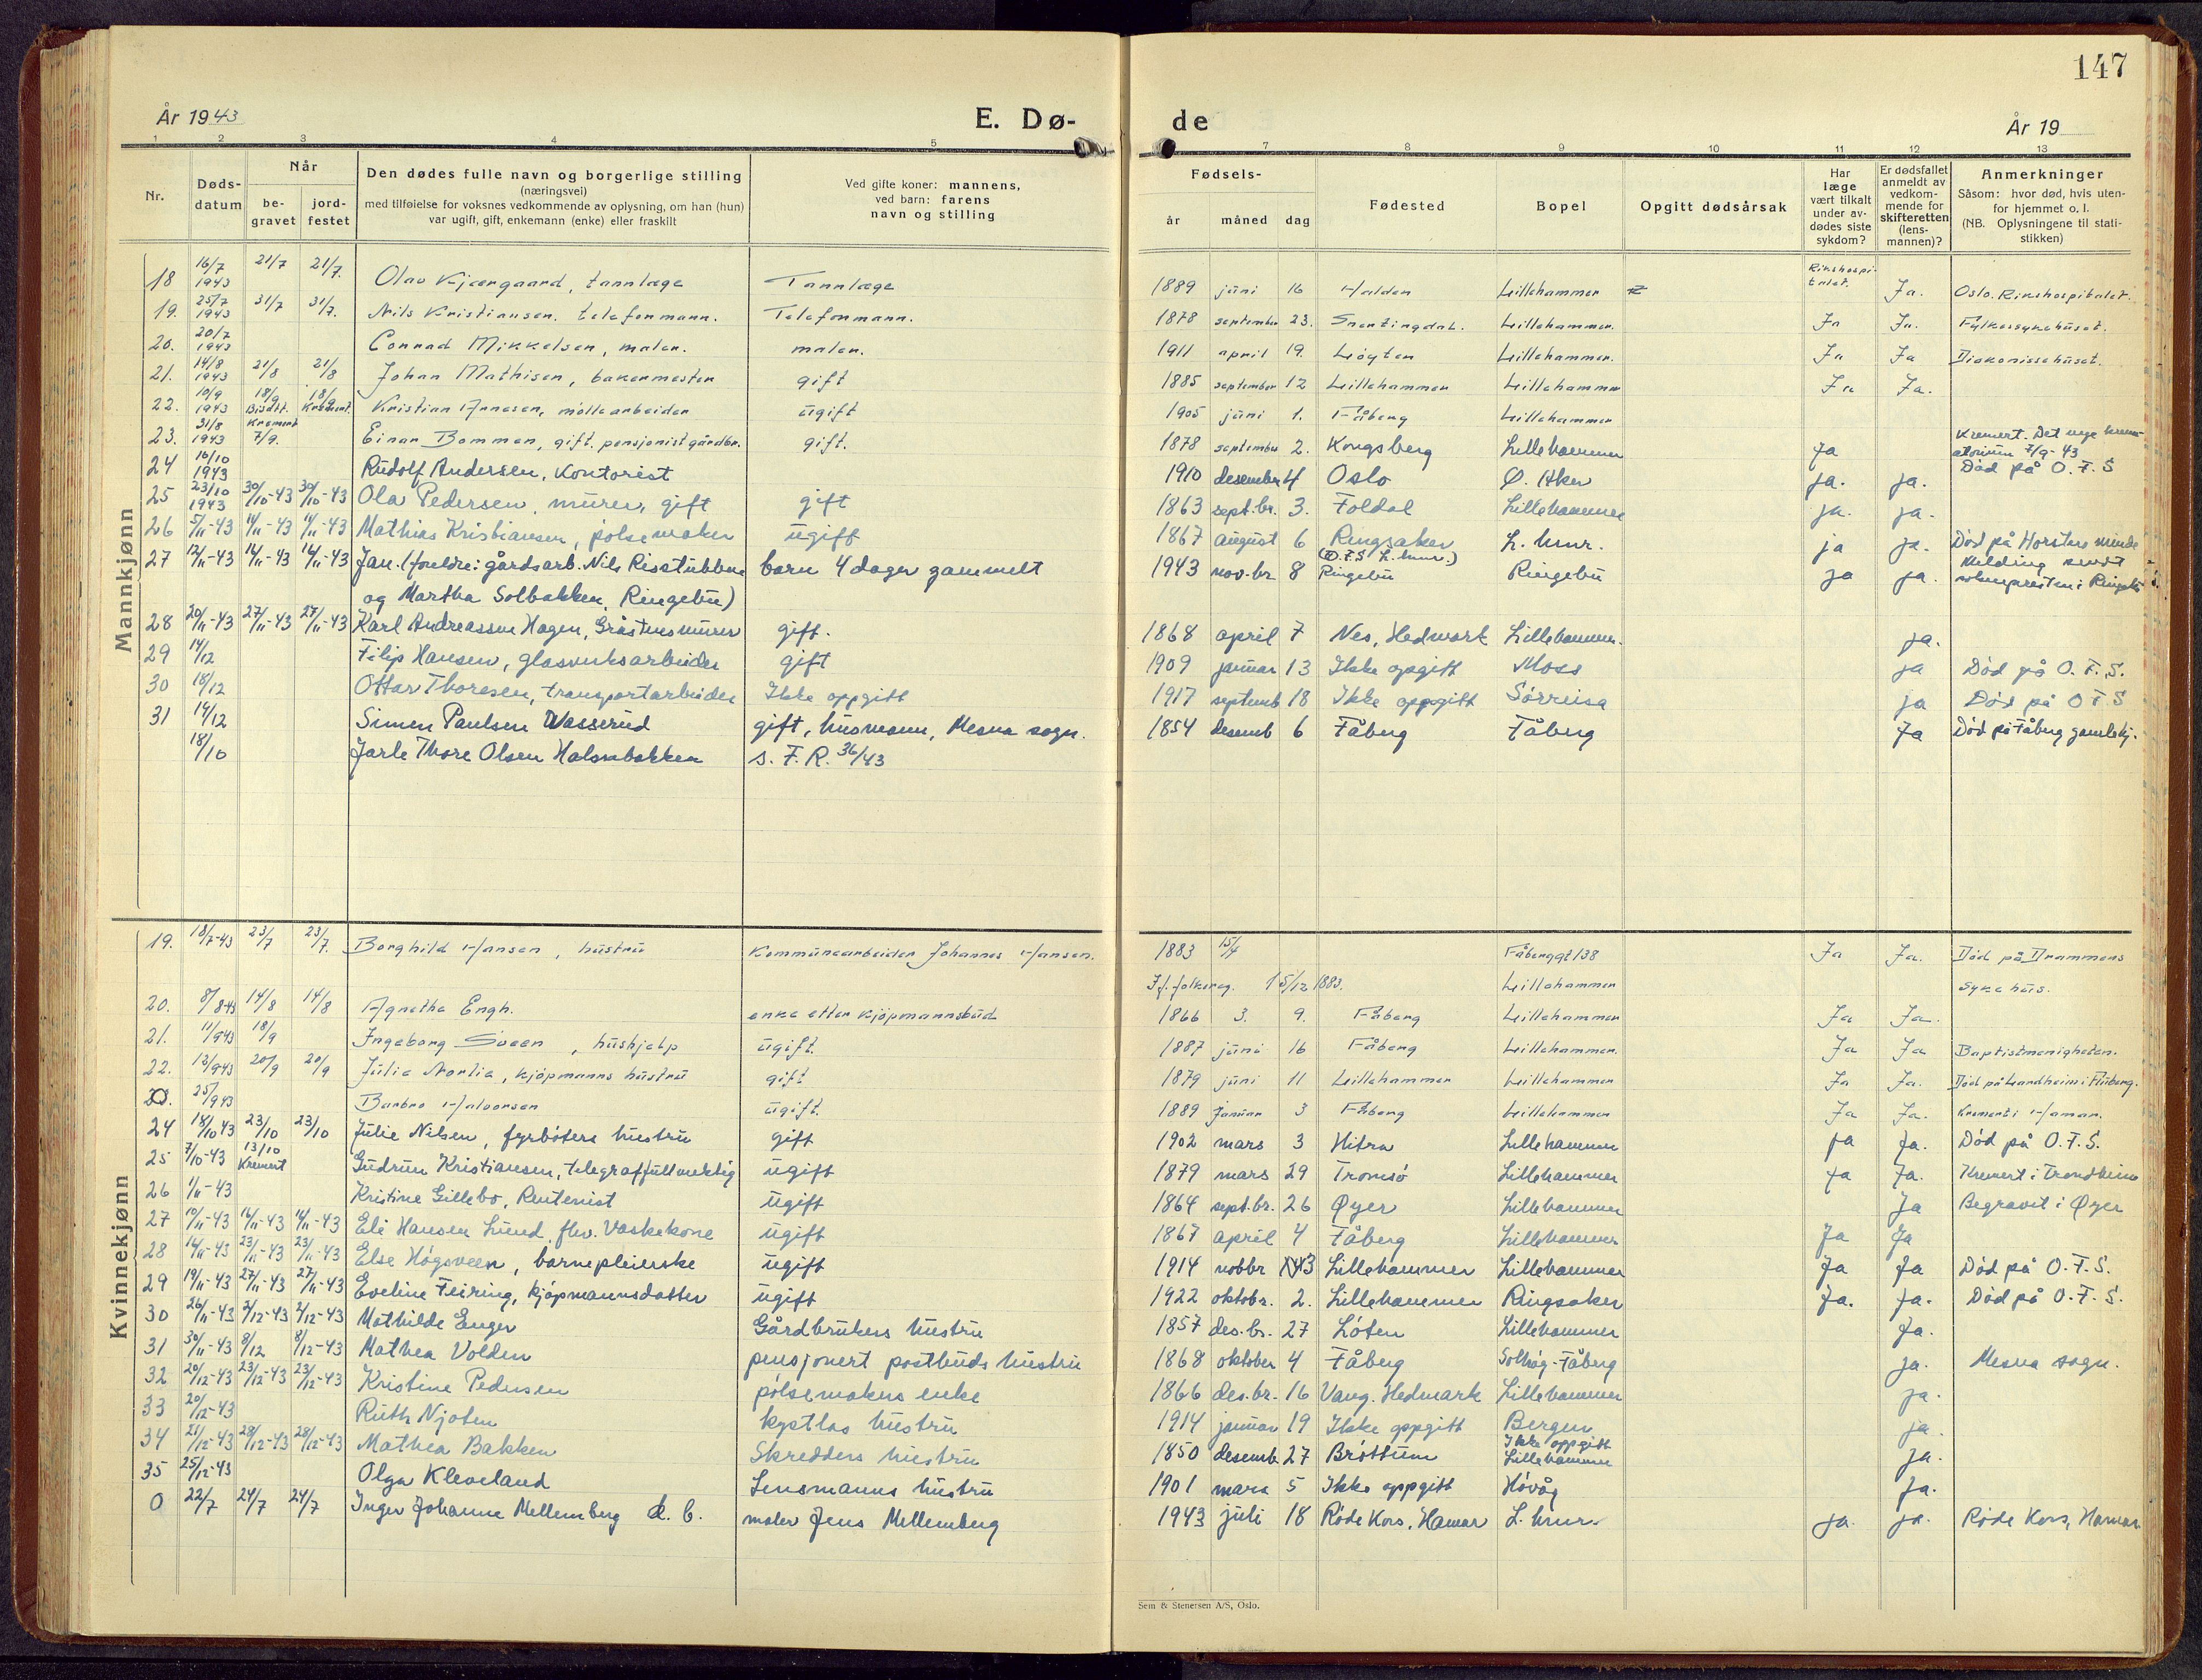 147
År 1943
E. Dø-
de
År 19
1 2 3 4 5 7 8 9 10 11 12 13
Nr.
Døds-
datum
Når
be-
gravet
jord-
festet
Den dødes fulle navn og borgerlige stilling
(næringsvei)
med tilføielse for voksnes vedkommende av oplysning, om han (hun)
var ugift, gift, enkemann (enke) eller fraskilt
Ved gifte koner: mannens,
ved barn: farens
navn og stilling
Fødsels-
år måned dag
Fødested
Bopel
Opgitt dødsårsak
Har
læge
vært tilkalt
under av-
dødes siste
sykdom?
Er dødsfallet
anmeldt av
vedkom-
mende for
skifteretten
(lens-
mannen)?
Anmerkninger
Såsom: hvor død, hvis uten-
for hjemmet o. l.
(NB. Oplysningene til stati-
stikken)
Mannkjønn
18 16/7 1943 21/7 21/7. Olav Kjærgaard, tannlæge Tannlæge 1889 juni 16 Halden Lillehammer Rikshospitalet. Ja. Oslo. Rikshospitalet.
19. 25/7 1943 31/7 31/7. Nils Kristiansen. telefonmann. Telefonmann. 1878 september 23. Snertingdal. Lillehammer. Ja Ja. Fylkessykehuset.
20. 20/7 1943 Conrad Mikkelsen, maler. maler. 1911 april 19. Løyten Lillehammer. Ja Ja Diakonissehuset.
21. 14/8 1943 21/8 21/8 Johan Mathisen, bakermester gift 1885 september 12 Lillehammer Lillehammer Ja Ja.
22. 10/9 1943 18/9 Bisatt. 18/9 Kremert. Kristian Arnesen, møllearbeider ugift 1905 juni 1. Fåberg Lillehammer
23. 31/8 1943 Kremert 7/9. Einar Bommen, gift. pensjonist gårdbr. gift. 1878 september 2. Kongsberg Lillehammer Ja Kremert. Det nye krematorium 7/9-43
24 16/10 1943 Rudolf Andersen, Kontorist 1910 desember 4 Oslo Ø. Aker ja. ja. Død på O.F.S
25 23/10 1943 30/10-43 30/10-43 Ola Pedersen, murer, gift gift 1863 sept.br. 3. Foldal Lillehammer ja. ja.
26 5/11-43 11/11-43 11/11-43 Mathias Kristiansen, pølsemaker ugift 1867 august 6 Ringsaker L. hmr. ja ja. Død på Horsters minde
27 12/11-43 16/11-43 16/11-43 Jan. (foreldre: gårdsarb. Nils Risstubben barn 4 dager gammelt 1943 nov.br 8 (O.F.S L. hmr.) Ringebu Ringebu ja ja. Melding sendt
og Martha Solbakken, Ringebu) soknepresten i Ringebu
28 20/11-43 27/11-43 27/11-43 Karl Andreassen Hagen, Gråstensmurer gift. 1868 april 7 Nes, Hedmark Lillehammer. ja.
29 14/12 Filip Hansen, glasverksarbeider gift 1909 januar 13 Ikke opgitt Moss ja Død på O.F.S.
30 18/12 Ottar Thoresen, transportarbeider Ikke oppgitt 1917 septemb 18 Ikke oppgitt Sørreisa ja Død på O F S
31 14/12 Simen Paulsen Wasserud gift, husmann, Mesna sogn. 1854 desemb 6 Fåberg Fåberg Ja Død på Fåberg gamlehj.
18/10 Jarle Thore Olsen Halsnebakken s. F. R. 36/43
Kvinnekjønn
19. 18/7-43 23/7 23/7. Borghild Hansen, hustru Kommunearbeider Johannes Hansen. 1883 15/4 Fåberggt 138 Ja Ja. Død på Drammens
If. folkereg. 15/12 1883. Lillehammer Sykehus.
20. 8/8-43 14/8 14/8 Agnethe Engh. enke etter kjøpmannsbud 1866 3. 9. Fåberg Lillehammer Ja Ja.
21. 11/9 43 18/9 Ingeborg Sveen, hushjelp ugift. 1887 juni 16 Fåberg Lillehammer. Ja Ja Baptistmenigheten.
22. 13/9 43 20/9 20/9 Julie Nortie, kjøpmanns hustru gift 1879 juni 11 Lillehammer Lillehammer Ja Ja. Død på Landheim i Fåberg.
25/9 43 Barbro Halvorsen ugift. 1889 Januar 3 Fåberg Lillehammer Ja Ja. Kremert i Hamar.
24 18/10 43 23/10 23/10 Julie Nilsen, fyrbøters hustru gift 1902 mars 3 Hitra Lillehammer ja Ja. Død på O.F.S.
25 7/10-43 13/10 Kremert Gudrun Kristiansen, telegraffullmektig ugift 1879 mars 29 Tromsø Lillehammer ja Ja. Kremert i Trondheim
26 1/11-43 Kristine Gillebo, Rentenist ugift 1864 sept.br. 26 Øyer Lillehammer Ja Begravet i Øyer
27 10/11-43 16/11-43 16/11-43 Eli Hansen Lund, fhv. Vaskekone ugift 1867 april 4 Fåberg Lillehammer Ja Ja
28 16/11-43 23/11-43 23/11-43 Else Høgsveen, barnepleierske ugift 1914 nobbr 13 Lillehammer Lillehammer Ja Ja Død på O.F.S.
29 19/11-43 27/11-43 27/11-43 Eveline Feiring, kjøpmannsdatter ugift 1922 oktobr. 2. Lillehammer Ringsaker Ja. Ja. Død på O.F.S.
30 26/11-43 2/12-43 2/12-43 Mathilde Enger Gårdbrukers hustru 1857 des.br. 27 Løten Lillehammer Ja.
31 30/11-43 8/12 8/12-43 Mathea Volden pensjonert postbuds hustru 1868 oktober 4 Fåberg Solhøg-Fåberg ja. Mesna sogn.
32 20/12-43 23/12-43 23/12-43 Kristine Pedersen pølsemakers enke 1866 des.br. 16 Vang. Hedmark Lillehammer ja.
33 20/12-43 Ruth Njoten hustru 1914 januar 19 Ikke oppgitt Bergen ja.
34 21/12-43 28/12-43 28/12-43 Mathea Bakken Skredders hustru 1850 desemb. 27 Brøttum Ikke oppgitt Lillehammer Ja.
35 25/12-43 Olga Kleveland Lensmanns hustru 1901 mars 5 Ikke oppgitt Høvåg Ja.
0 22/7 24/7 24/7 Inger Johanne Mellemberg d. b. maler Jens Mellemberg 1943 juli 18 Røde Kors, Hamar L. hmr. ja. ja. Røde Kors, Hamar
Sem & Stenersen A/S, Oslo.